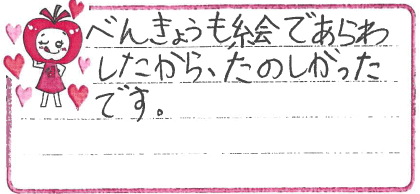 べんきょうも絵であらわ
したから、たのしかった
です。